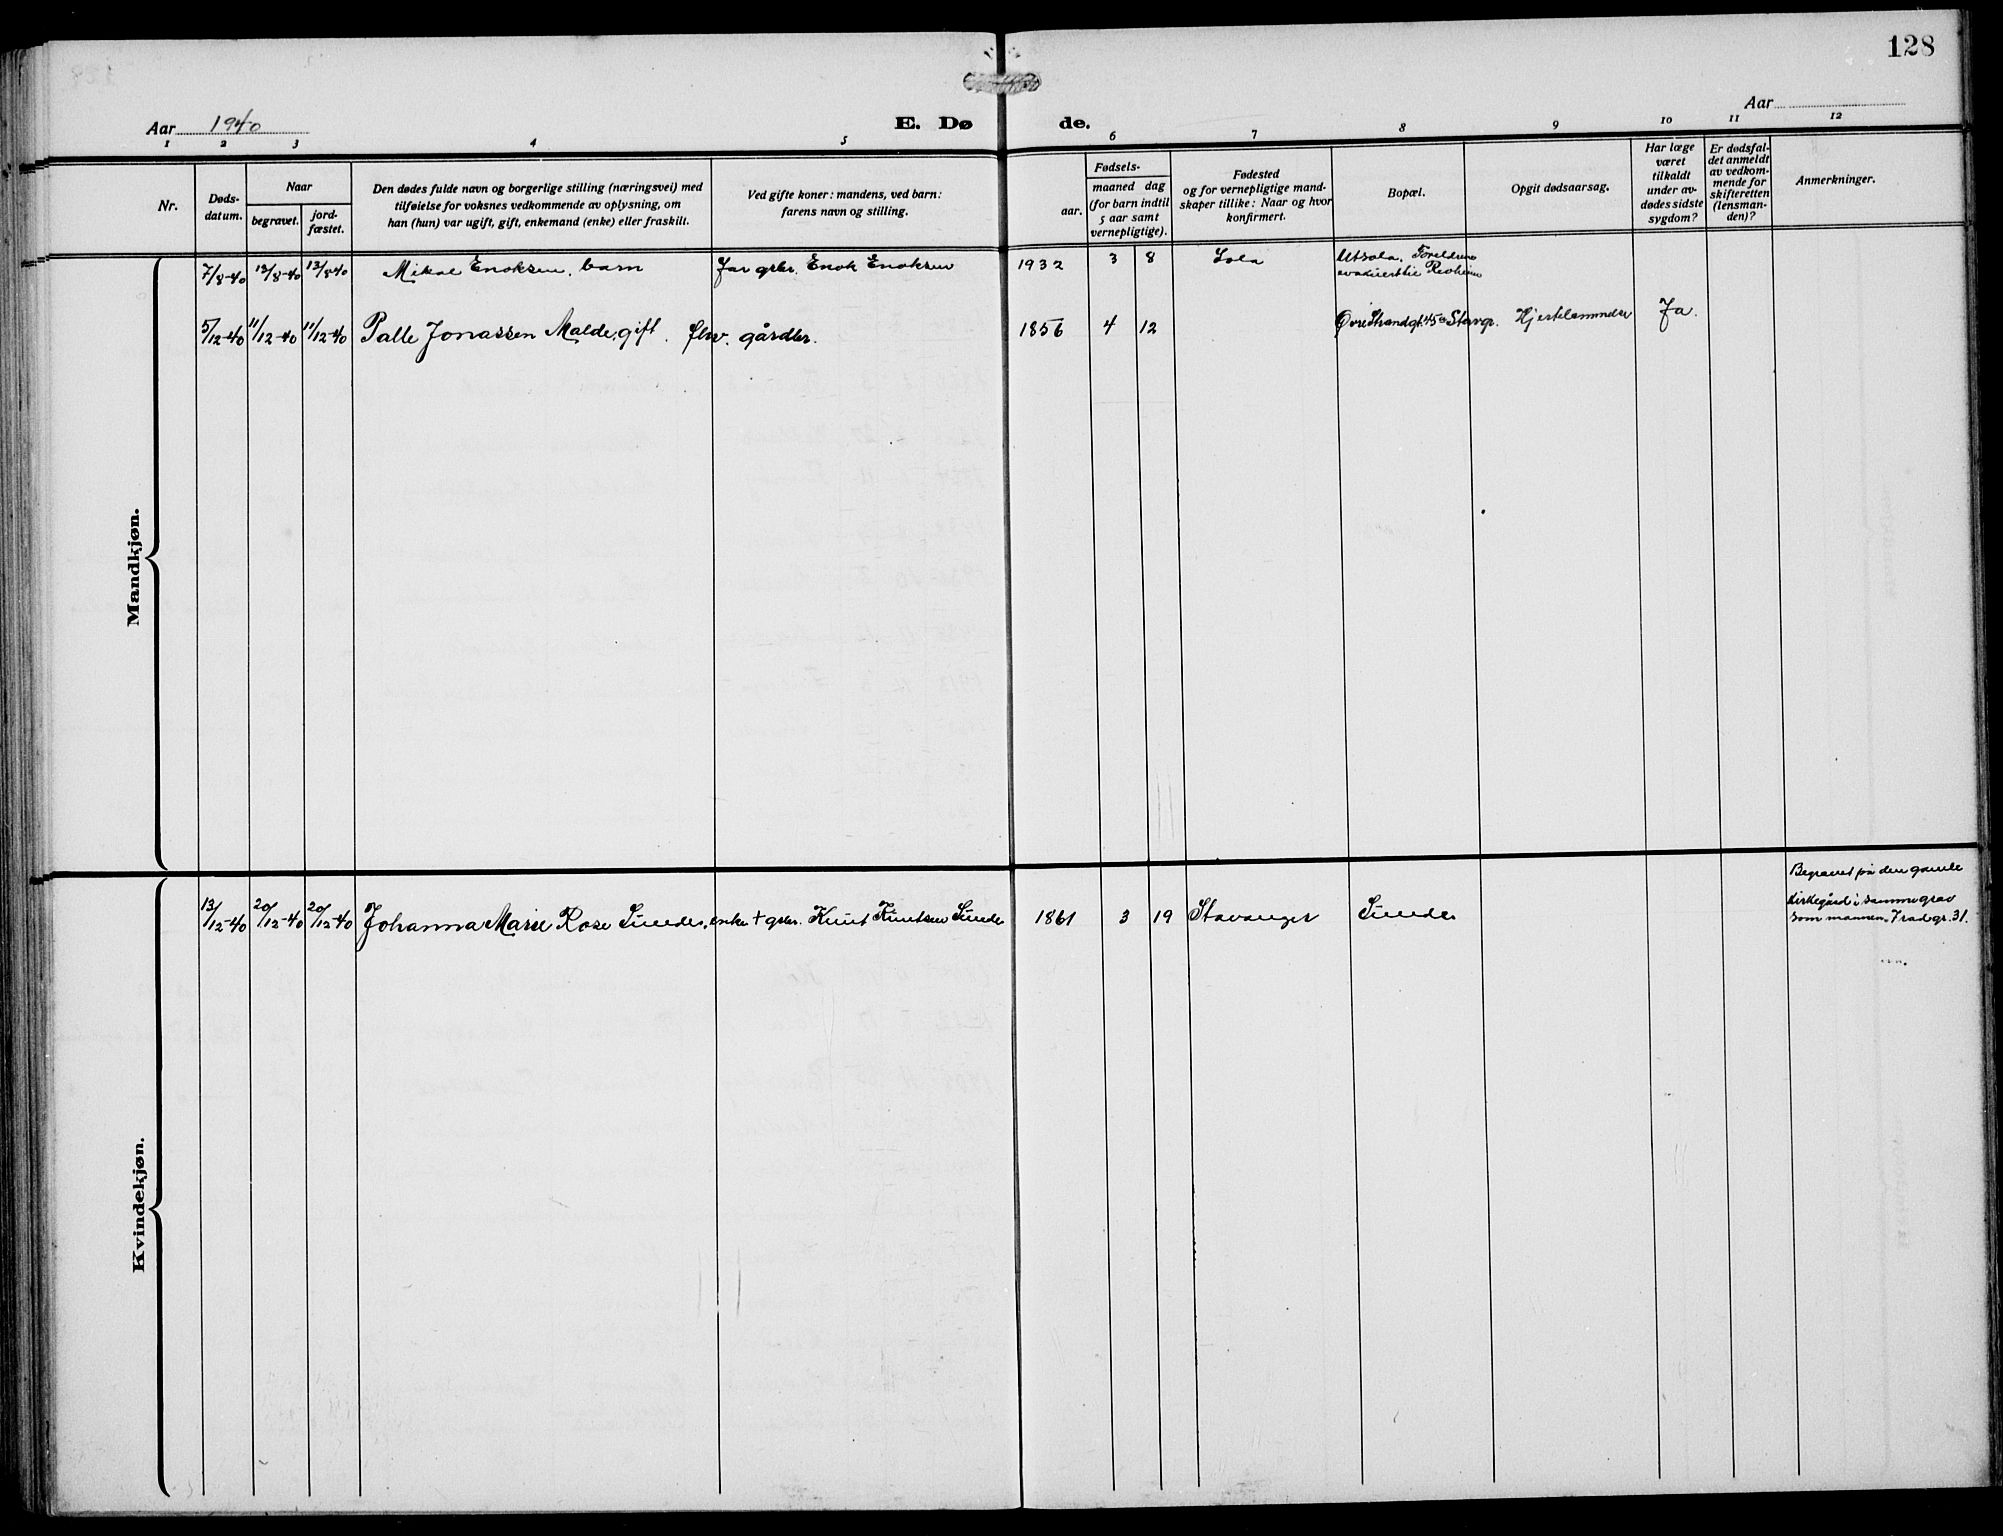 128
Aar 1940
E. Dø de.
Aar
1 2 3 4 5 6 7 8 9 10 11 12
Nr.
Døds-
datum.
Naar
begravet.
jord-
fæstet.
Den dødes fulde navn og borgerlige stilling (næringsvei) med
tilføielse for voksnes vedkommende av oplysning, om
han (hun) var ugift, gift, enkemand (enke) eller fraskilt.
Ved gifte koner: mandens, ved barn:
farens navn og stilling.
Fødsels-
aar.
maaned dag
(for barn indtil
5 aar samt
vernepligtige).
Fødested
og for vernepligtige mand-
skaper tillike: Naar og hvor
konfirmert.
Bopæl.
Opgit dødsaarsag.
Har læge
været
tilkaldt
under av-
dødes sidste
sygdom?
Er dødsfal-
det anmeldt
av vedkom-
mende for
skifteretten
(lensman-
den)?
Anmerkninger.
Mandkjøn.
7/8-40 13/8-40 13/8-40 Mikal Enoksen, barn Far gbr. Enok Enoksen 1932 3 8 Sola Utsola. Foreldrene
evakuert til Revheim
5/12-40 11/12-40 11/12-40 Palle Jonassen Malde, gift. fhv. gårdbr. 1856 4 12 Øvre Strandgt. 45a Stavgr. Hjertelammelse Ja.
Kvindekjøn.
13/12-40 20/12-40 20/12-40 Johanna Marie Rose Sunde, enke + gbr. Knut Knutsen Sunde 1861 3 19 Stavanger Sunde
Begravet på den gamle
kirkegård i samme grav
som mannen, 7 rad gr. 31.